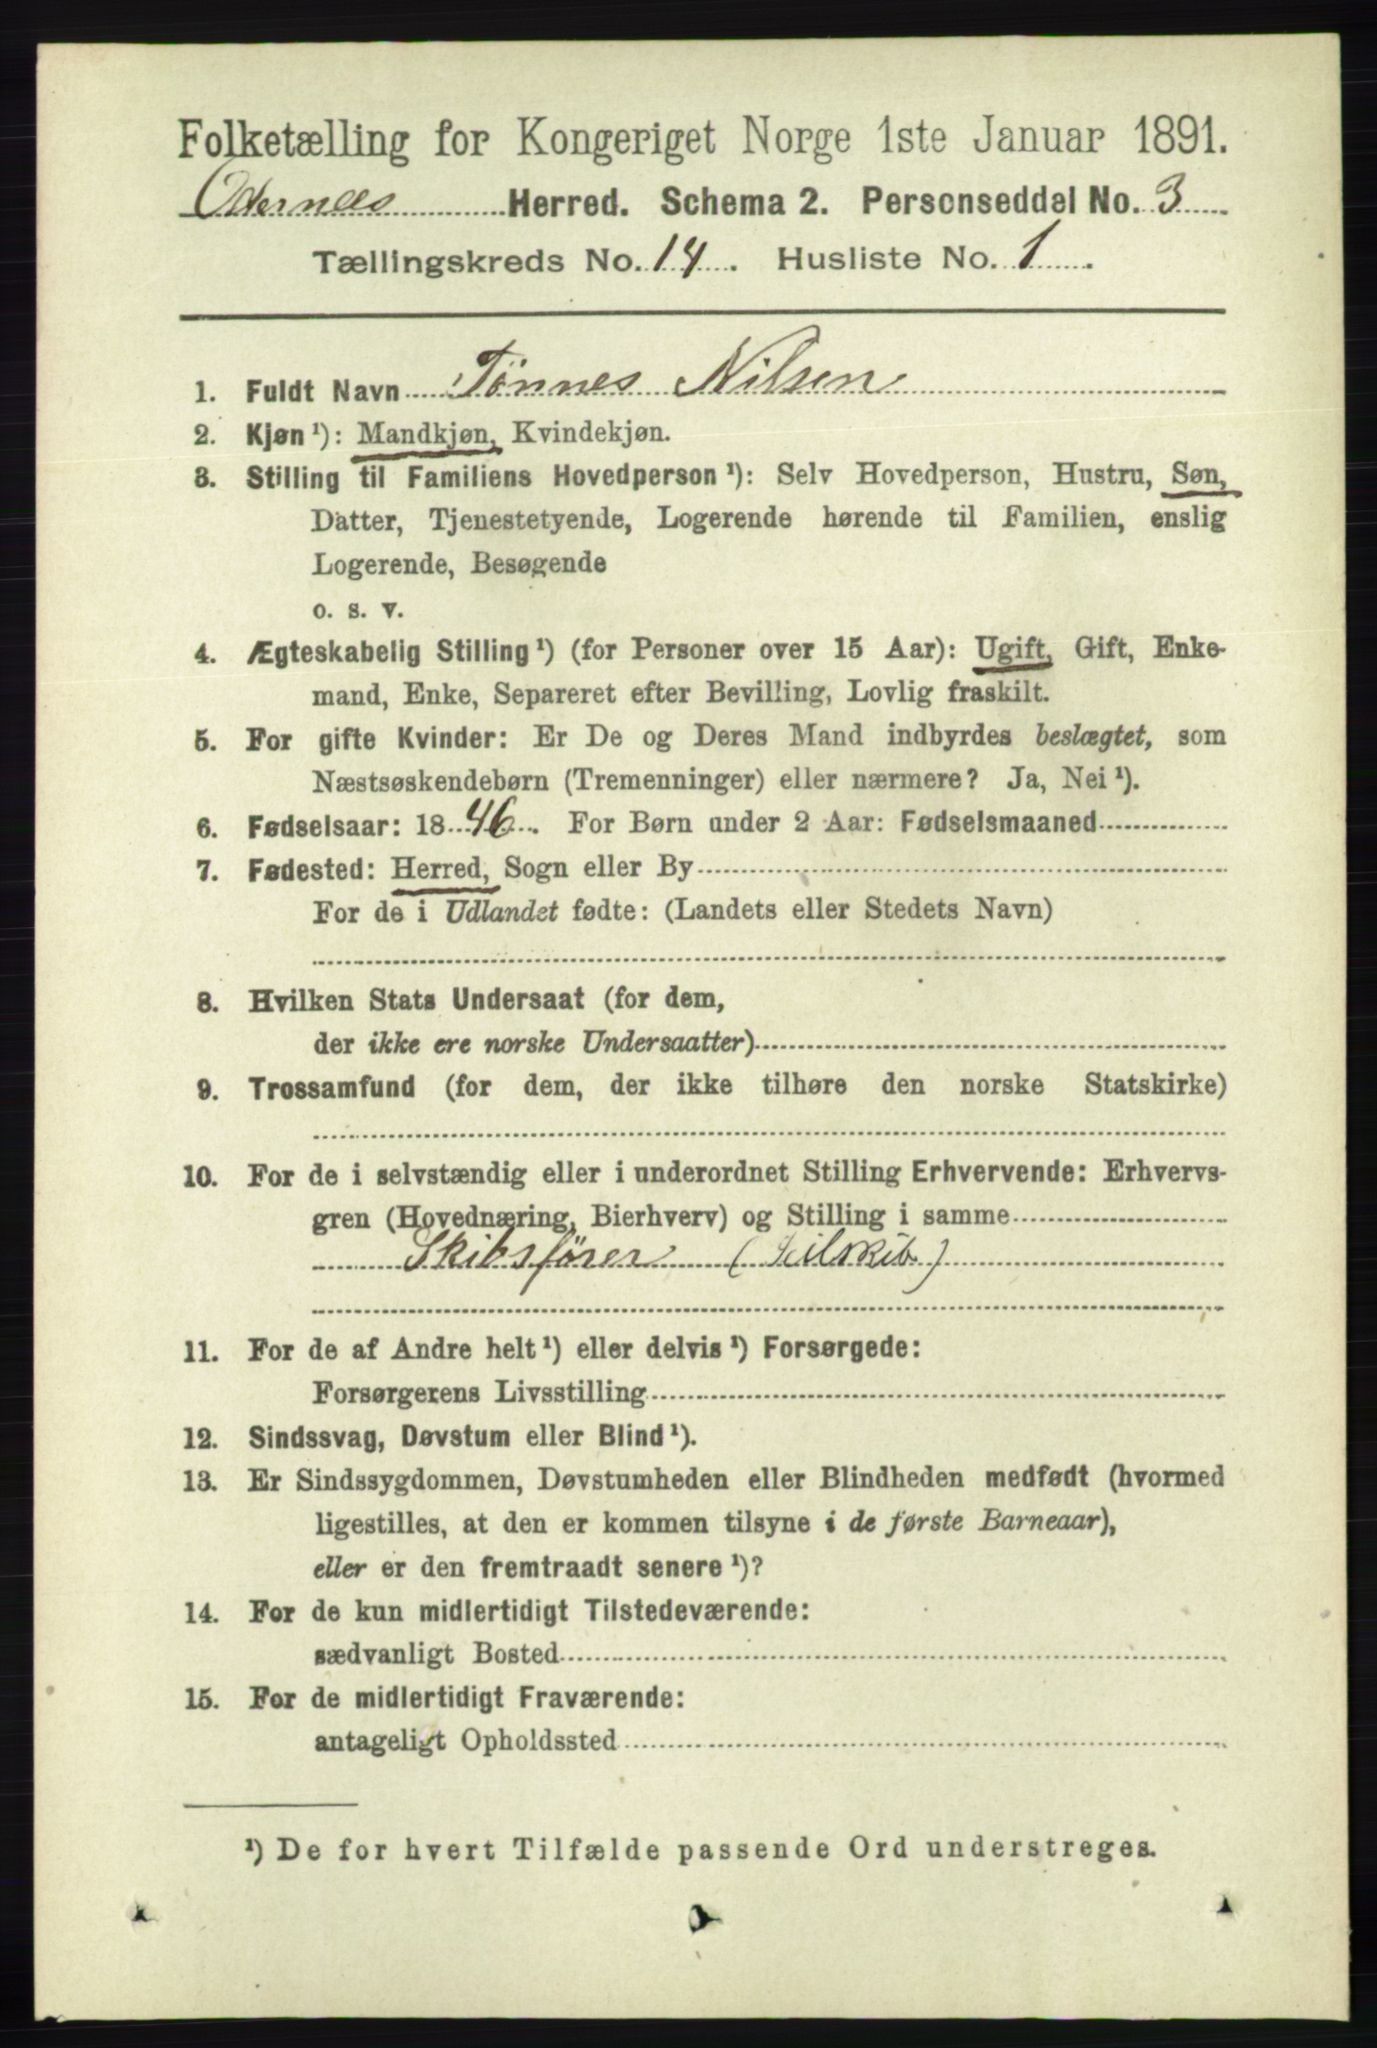 Folketælling for Kongeriget Norge 1ste Januar 1891.
Odernæs Herred. Schema 2. Personseddel No. 3
Tællingskreds No. 14. Husliste No. 1.
1. Fuldt Navn Tønnes Nilsen
2. Kjøn¹): Mandkjøn, Kvindekjøn.
3. Stilling til Familiens Hovedperson¹): Selv Hovedperson, Hustru, Søn,
Datter, Tjenestetyende, Logerende hørende til Familien, enslig
Logerende, Besøgende
o. s. v.
4. Ægteskabelig Stilling¹) (for Personer over 15 Aar): Ugift, Gift, Enke-
mand, Enke, Separeret efter Bevilling, Lovlig fraskilt.
5. For gifte Kvinder: Er De og Deres Mand indbyrdes beslægtet, som
Næstsøskendebørn (Tremenninger) eller nærmere? Ja, Nei¹).
6. Fødselsaar: 1846. For Børn under 2 Aar: Fødselsmaaned
7. Fødested: Herred, Sogn eller By
For de i Udlandet fødte: (Landets eller Stedets Navn)
8. Hvilken Stats Undersaat (for dem,
der ikke ere norske Undersaatter)
9. Trossamfund (for dem, der ikke tilhøre den norske Statskirke)
10. For de i selvstændig eller i underordnet Stilling Erhvervende: Erhvervs-
gren (Hovednæring, Bierhverv) og Stilling i samme
Skibsfører (Seilskib)
11. For de af Andre helt¹) eller delvis¹) Forsørgede:
Forsørgerens Livsstilling
12. Sindssvag, Døvstum eller Blind¹).
13. Er Sindssygdommen, Døvstumheden eller Blindheden medfødt (hvormed
ligestilles, at den er kommen tilsyne i de første Barneaar),
eller er den fremtraadt senere¹)?
14. For de kun midlertidigt Tilstedeværende:
sædvanligt Bosted
15. For de midlertidigt Fraværende:
antageligt Opholdssted
¹) De for hvert Tilfælde passende Ord understreges.